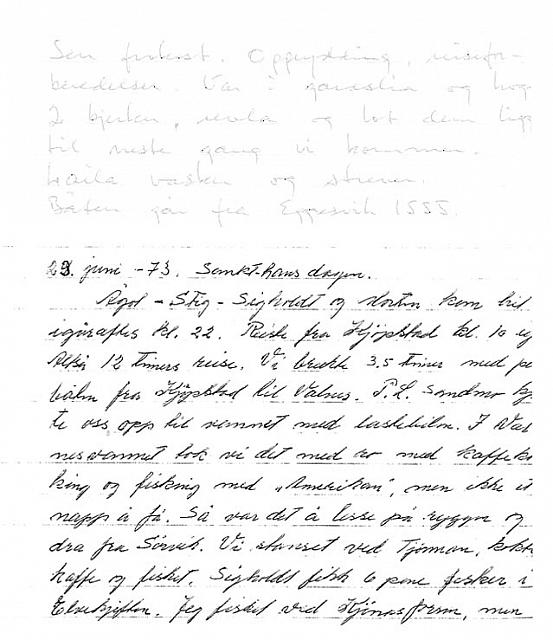 Sen frokost. Opprydding, reisefor-
beredelser. Var i garaslia og hog
2 bjerker, og lot dem ligg
til neste gang vi kommer.
Laila vasker og strener.
Båten går fra Eggesvik 1555.
23. juni -73. Sankthans dagen.
- Stig - Sigholdt og kom hit
kl. 22. Reiste fra Kjøpstad kl. 10
12 timers reise. Vi brukte 3,5 timer med
fra Kjøpstad til Valnes. P.L. Sandmo
te oss opp til vannet med lastebilen. I Val
nesvannet tok vi det med ro med kaffeko
king og fisking med „Amerikan", men ikke et
napp å få. Så var det å lesse på ryggen og
dra fra Sørvik. Vi stanset ved Tjønnan, kokte
kaffe og fisket. Sigholdt fikk 6 pene fisker i
Elvekjeften. Jeg fisket ved men